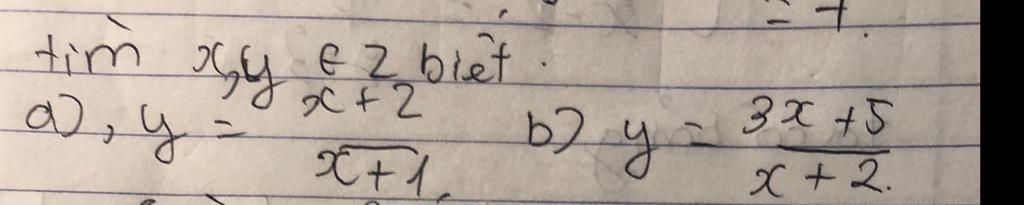 = 1.
tìm x,y ∈ Z biết.
a), y = \frac{x+2}{x+1}. b) y = \frac{3x+5}{x+2}.